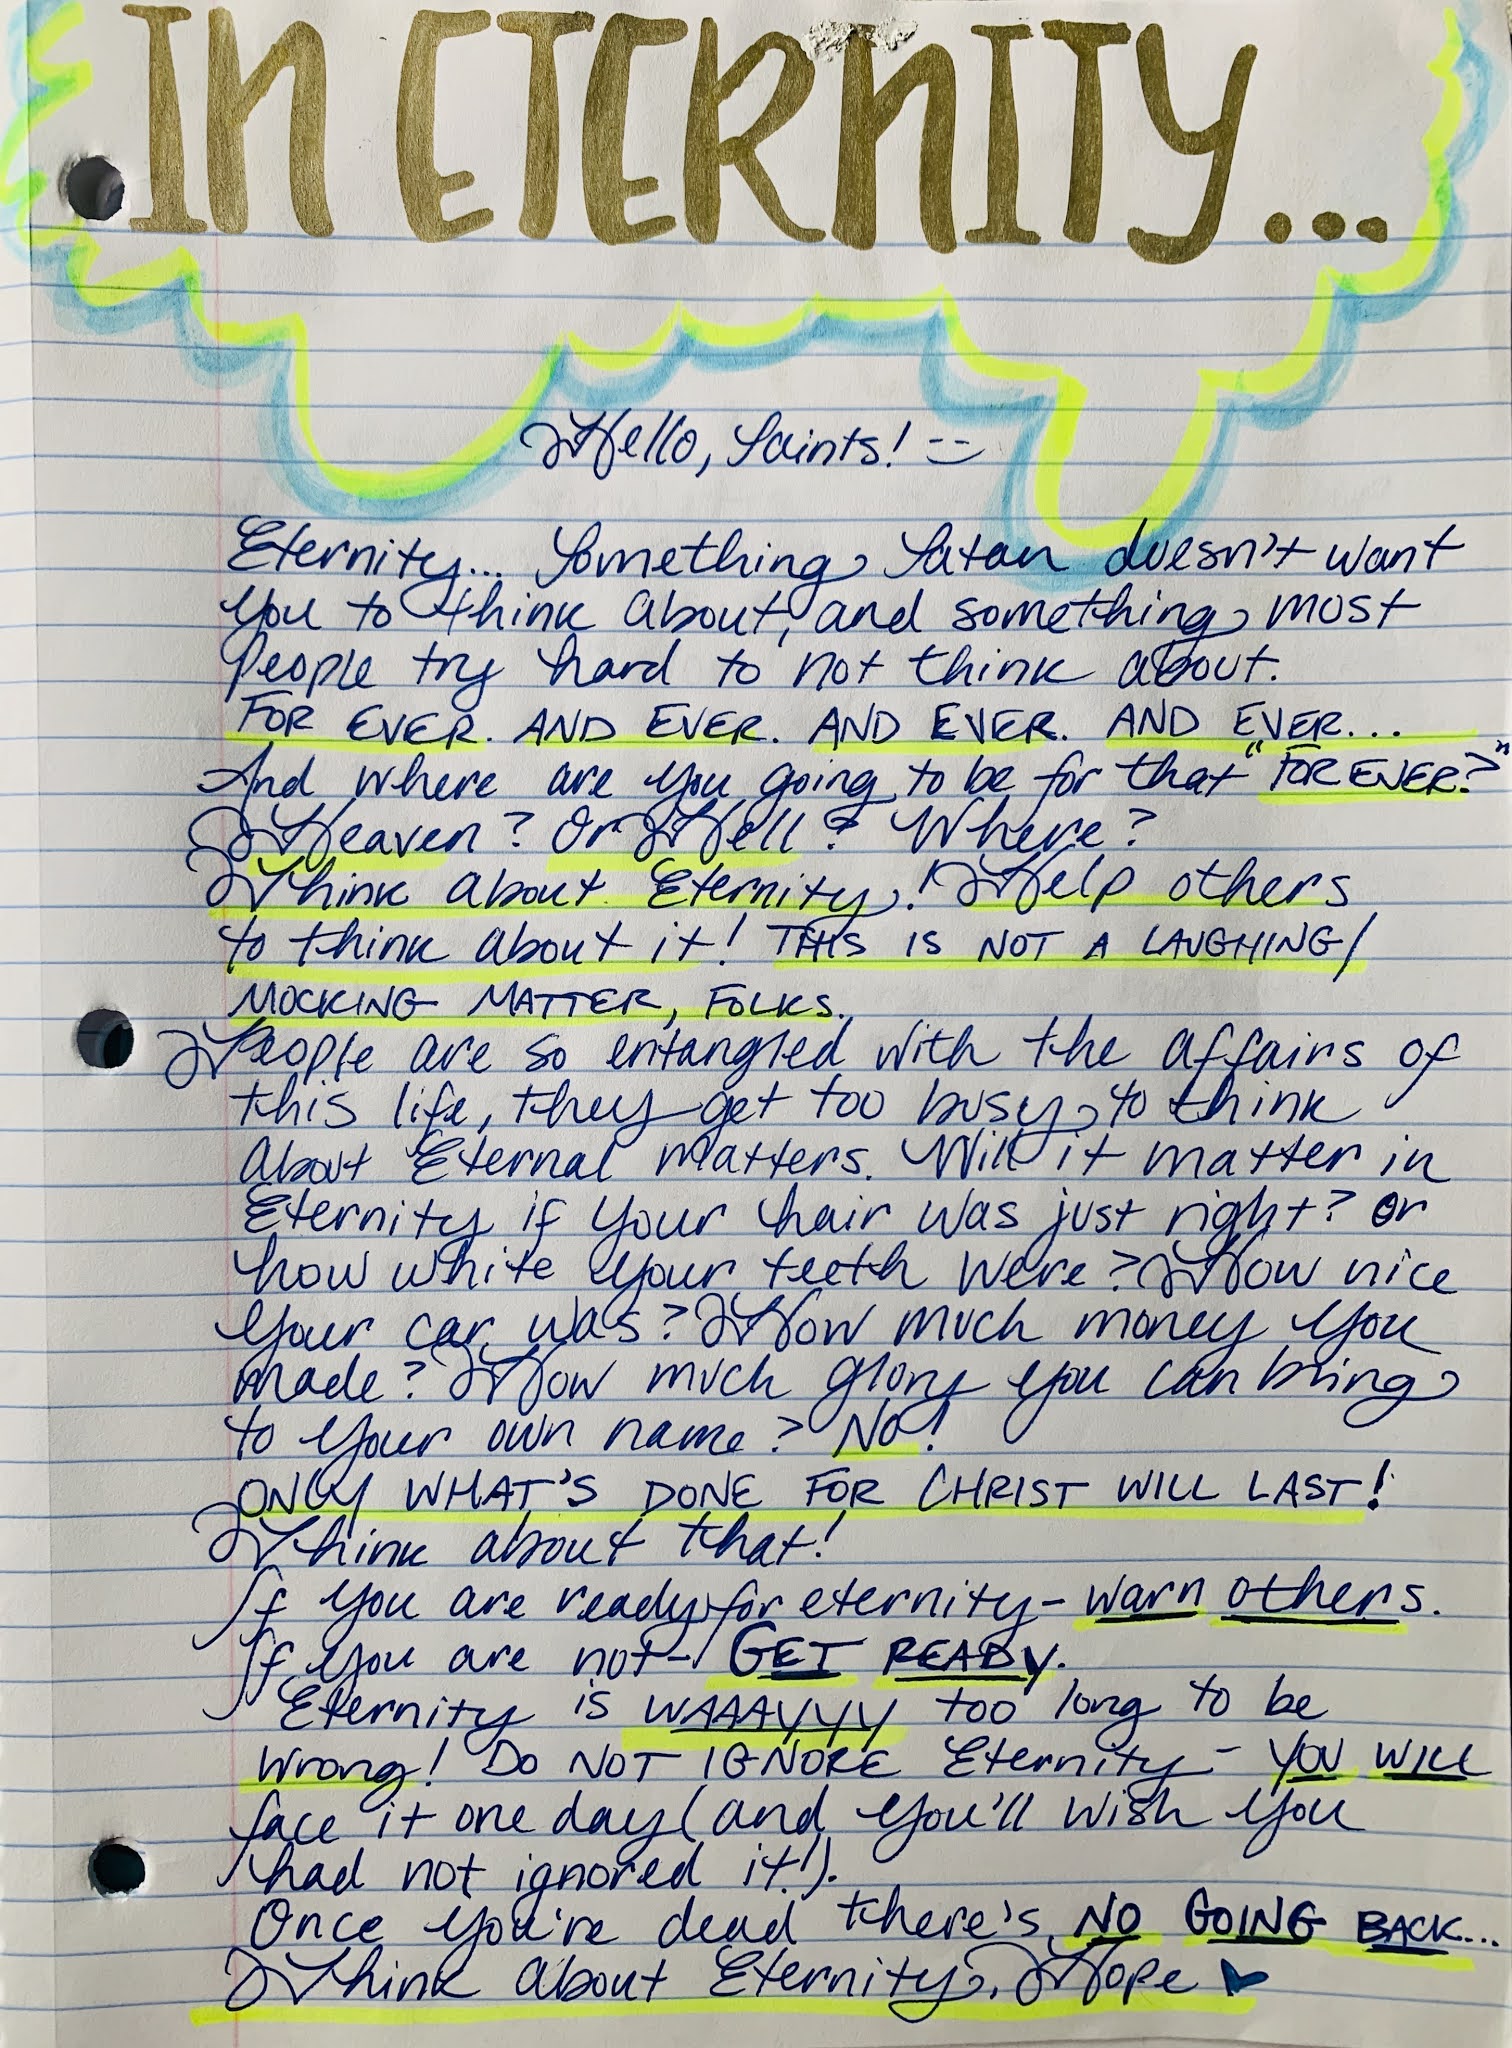 IN ETERNITY...
Hello, Saints!
Eternity... Something Satan doesn't want
you to think about, and something most
people try hard to not think about.
FOR EVER. AND EVER. AND EVER. AND EVER...
And where are you going to be for that "FOR EVER?"
Heaven? Or Hell? Where?
Think about Eternity! Help others
to think about it! THIS IS NOT A LAUGHING/
MOCKING MATTER, FOLKS.
People are so entangled with the affairs of
this life, they get too busy to think
about Eternal matters. Will it matter in
Eternity if your hair was just right? Or
how white your teeth were? How nice
your car was? How much money you
made? How much glory you can bring
to your own name? No!
ONLY WHAT'S DONE FOR CHRIST WILL LAST!
Think about that!
If you are ready for eternity - warn others.
If you are not - GET READY.
Eternity is WAAAYYYY too long to be
wrong! DO NOT IGNORE Eternity - YOU WILL
face it one day (and you'll wish you
had not ignored it!).
Once you're dead there's NO GOING BACK...
Think about Eternity. Hope